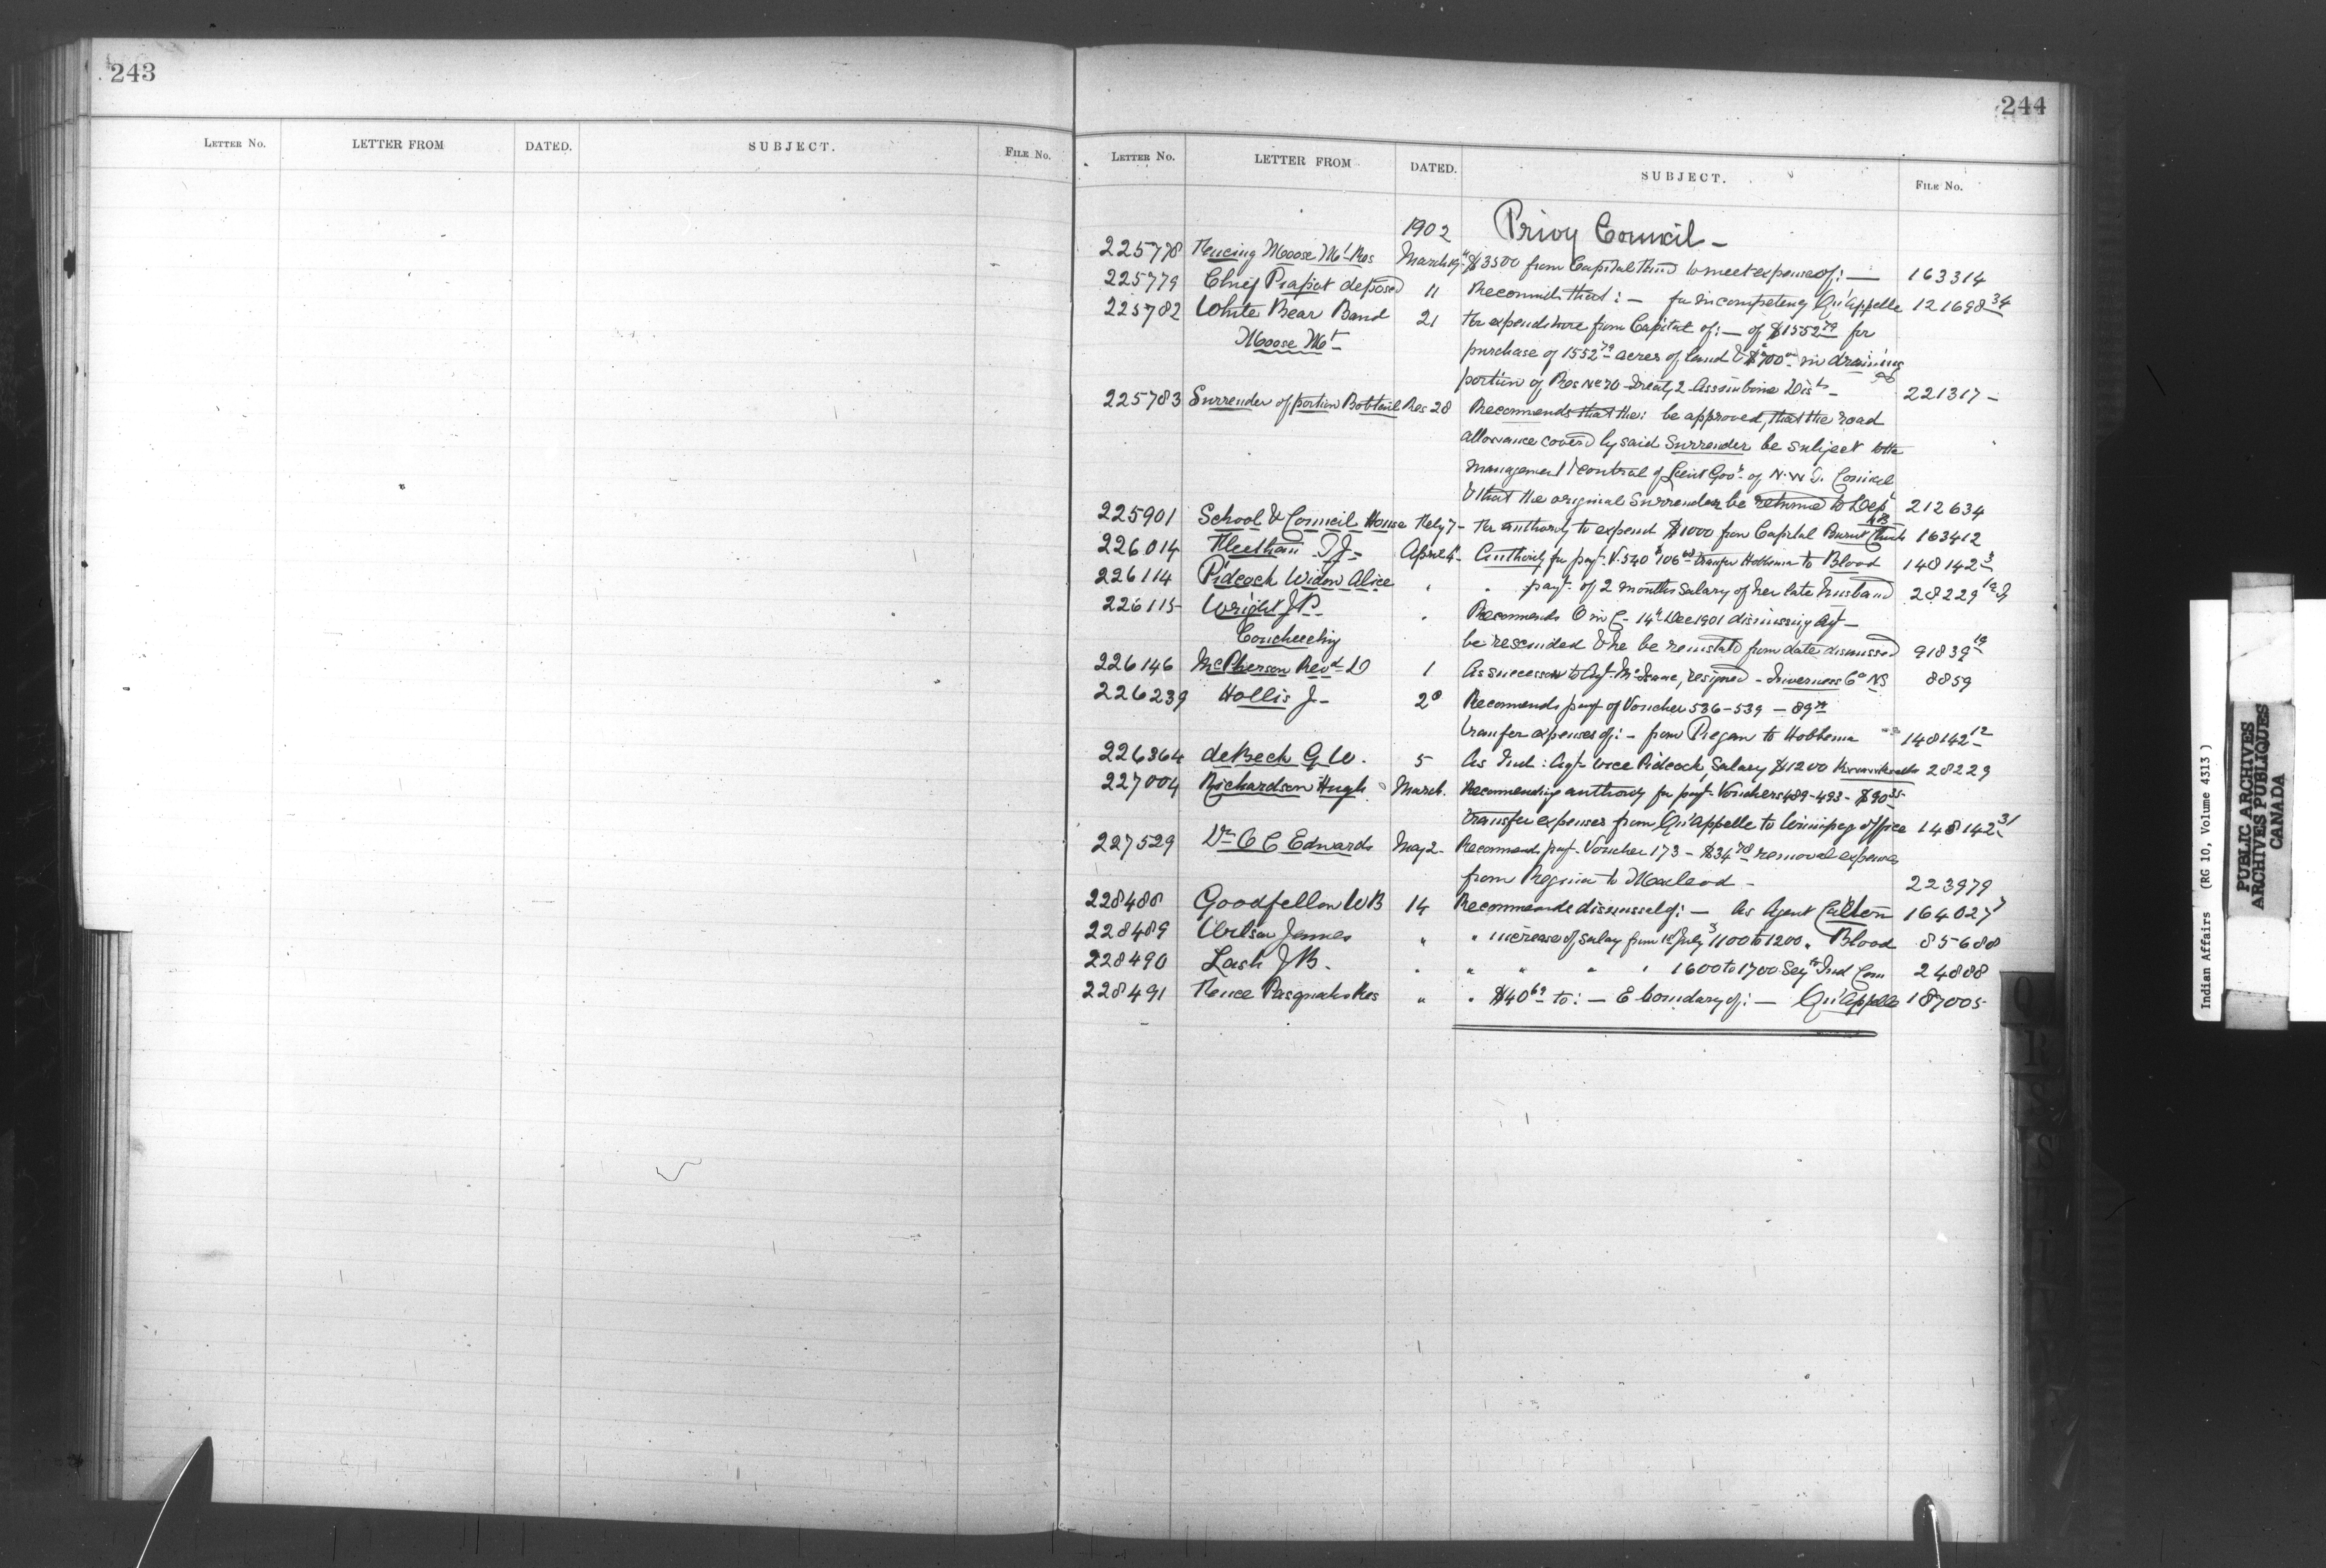 243
LETTER NO. LETTER FROM DATED. SUBJECT. FILE NO.
244
LETTER NO. LETTER FROM DATED. SUBJECT. FILE NO.
1902 Privy Council -
225778 Fencing Moose Mt Res March 19 $3500 from Capital Fund to meet expense of: — 163314
225779 Chief Piapot deposed 11 Recommends that: — for incompetency Qu'Appelle 121698 34
225782 White Bear Band 21 For expenditure from Capital of: — of $1552 79 for
Moose Mt purchase of 1552 79 acres of land & $700 00 in draining
portion of Res No 70 Treaty 2 Assiniboine Dist - 221317 -
225783 Surrender of portion Bobtail Res 28 Recommends that the: be approved, that the road
allowance covered by said Surrender be subject to the
management & control of Lieut Govr of N.W.T. Council
& that the original Surrender be returned to Dept 212634
225901 School & Council House Feby 7 - For authority to expend $1000 from Capital 163412
226014 Fleetham T J - April 4 - Authority for payt V. 540 $106 transfer Hobbema to Blood 148142 3
226114 Pidcock Widow Alice " " payt of 2 months Salary of her late husband 28229
226115 Wright J P. " Recommends O in C - 14th Dec 1901 dismissing Agt —
Couchiching be rescinded & he be reinstated from date dismissed 91839 19
226146 McPherson Revd D 1 As successor to Agt McIsaac, resigned - Inverness Co NS 8859
226239 Hollis J - 28 Recommends payt of Voucher 536-539 - 89
transfer expenses of: - from Piegan to Hobbema 148142 12
226364 deBeck G W. 5 As Ind: Agt vice Pidcock, Salary $1200 28229
227004 Richardson Hugh March. Recommending authority for payt Vouchers 489-493 - $90 35
transfer expenses from Qu'Appelle to Winnipeg office 148142 31
227529 Dr O C Edwards May 2 - Recommends payt Voucher 173 - $34 78 removal expenses
from Regina to Macleod - 223979
228488 Goodfellow W B 14 Recommends dismissal of: — As Agent Carlton 164027 7
228489 Wilson James " " increase of salary from 1st July $1100 to 1200 " Blood 85688
228490 Lash J B. " " " " " 1600 to 1700 Secy to Ind Com 24888
228491 Fence Pasquahs Res " " $40 69 to: — E boundary of: — Qu'Appelle 187005
Q
R
S
Indian Affairs (RG 10, Volume 4313)
PUBLIC ARCHIVES
ARCHIVES PUBLIQUES
CANADA